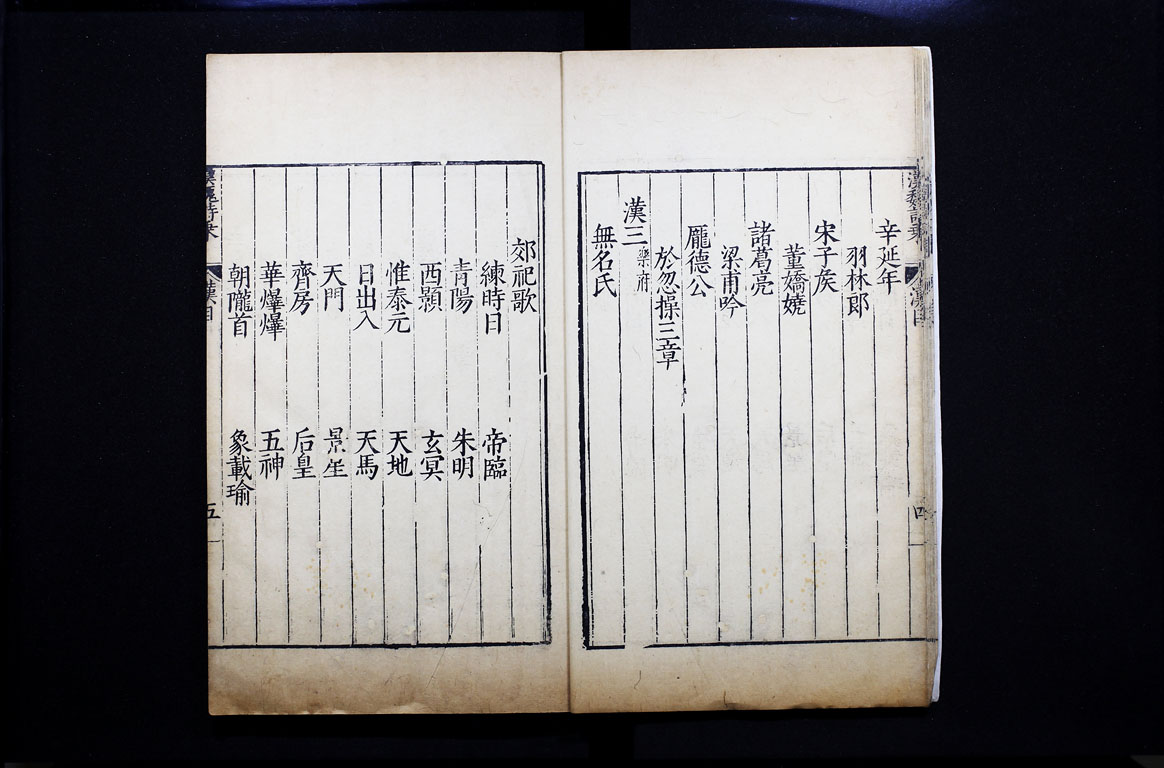 辛延年
羽林郎
宋子矦
董嬌嬈
諸葛亮
梁甫吟
龐德公
於忽操三章
漢三 樂府
無名氏
郊祀歌
練時日 帝臨
青陽 朱明
西顥 玄冥
惟泰元 天地
日出入 天馬
天門 景星
齊房 后皇
華爗爗 五神
朝隴首 象載瑜
五